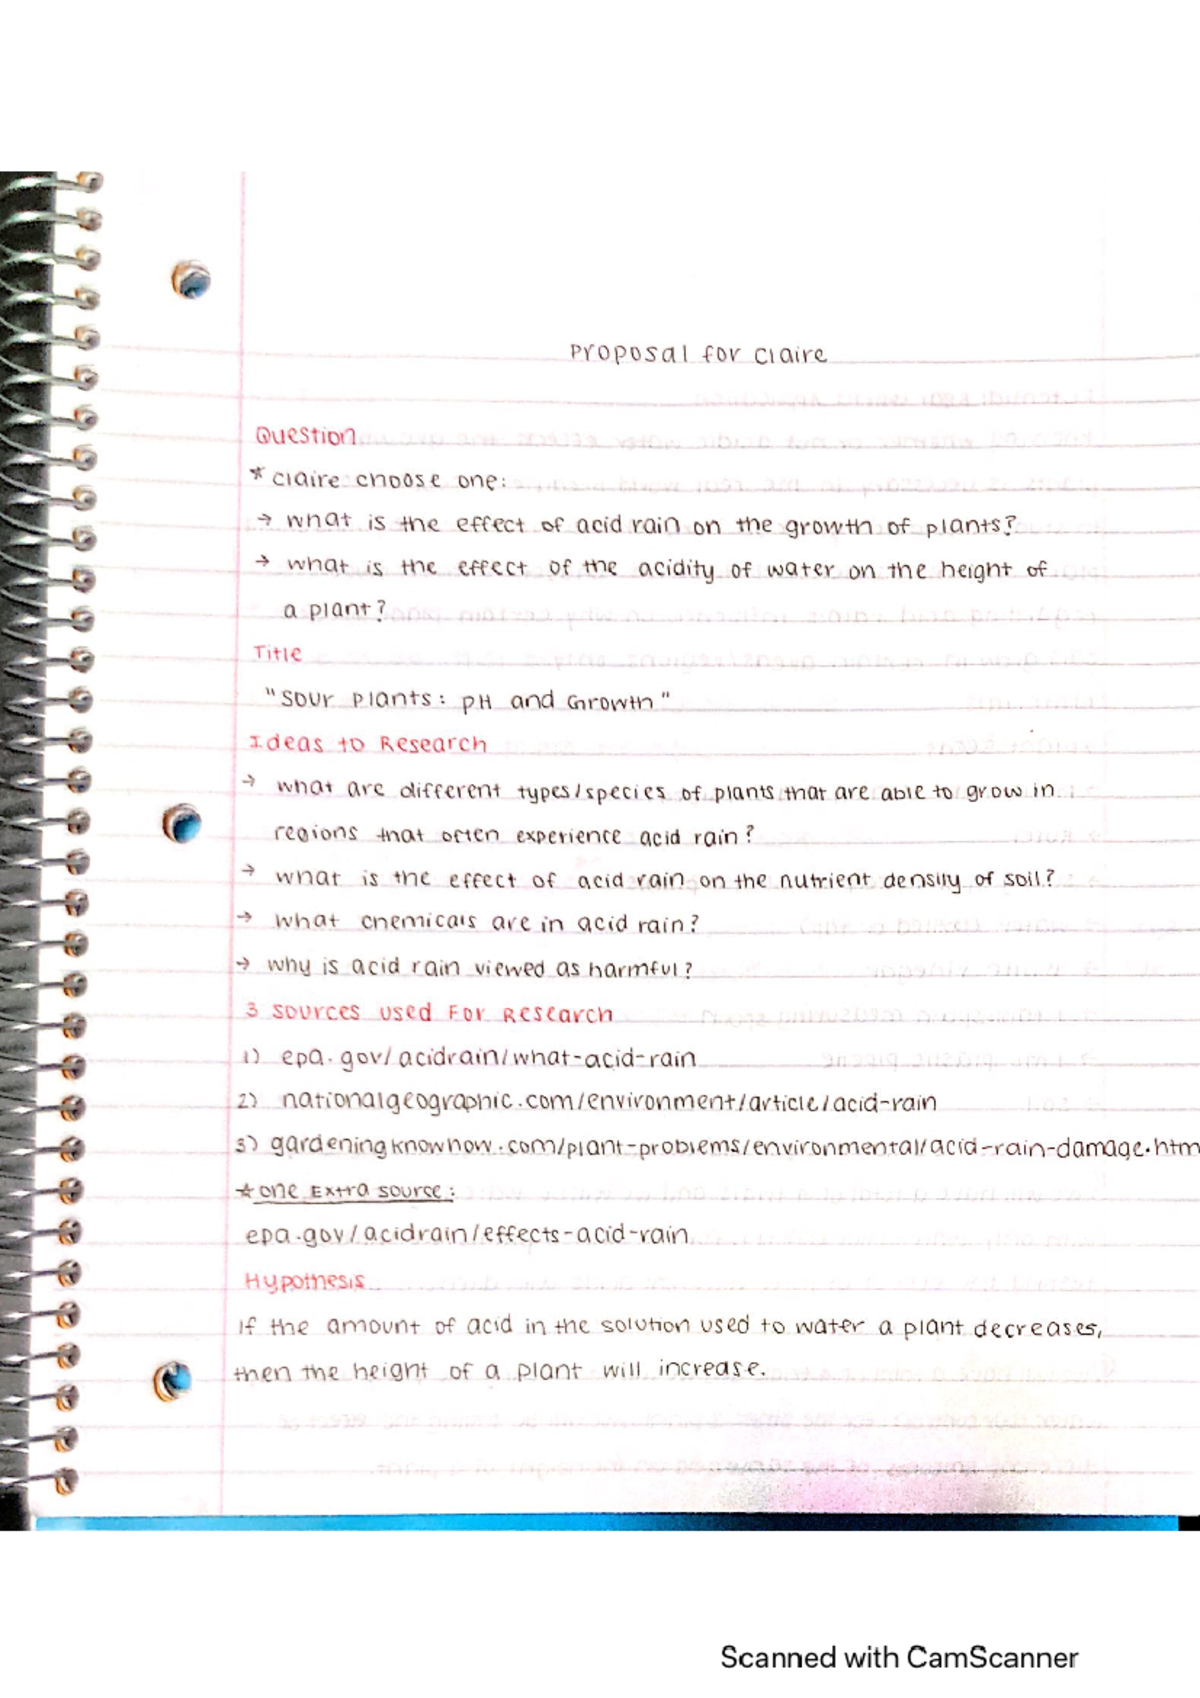 Proposal for Claire
Question
* Claire choose one:
→ what is the effect of acid rain on the growth of plants?
→ what is the effect of the acidity of water on the height of
a plant?
Title
"Sour Plants: pH and Growth"
Ideas to Research
→ what are different types/species of plants that are able to grow in
regions that often experience acid rain?
→ what is the effect of acid rain on the nutrient density of soil?
→ what chemicals are in acid rain?
→ why is acid rain viewed as harmful?
3 Sources used For Research
1) epa.gov/acidrain/what-acid-rain
2) nationalgeographic.com/environment/article/acid-rain
3) gardeningknowhow.com/plant-problems/environmental/acid-rain-damage.htm
☆ one Extra source:
epa.gov/acidrain/effects-acid-rain
Hypothesis
If the amount of acid in the solution used to water a plant decreases,
then the height of a plant will increase.
Scanned with CamScanner